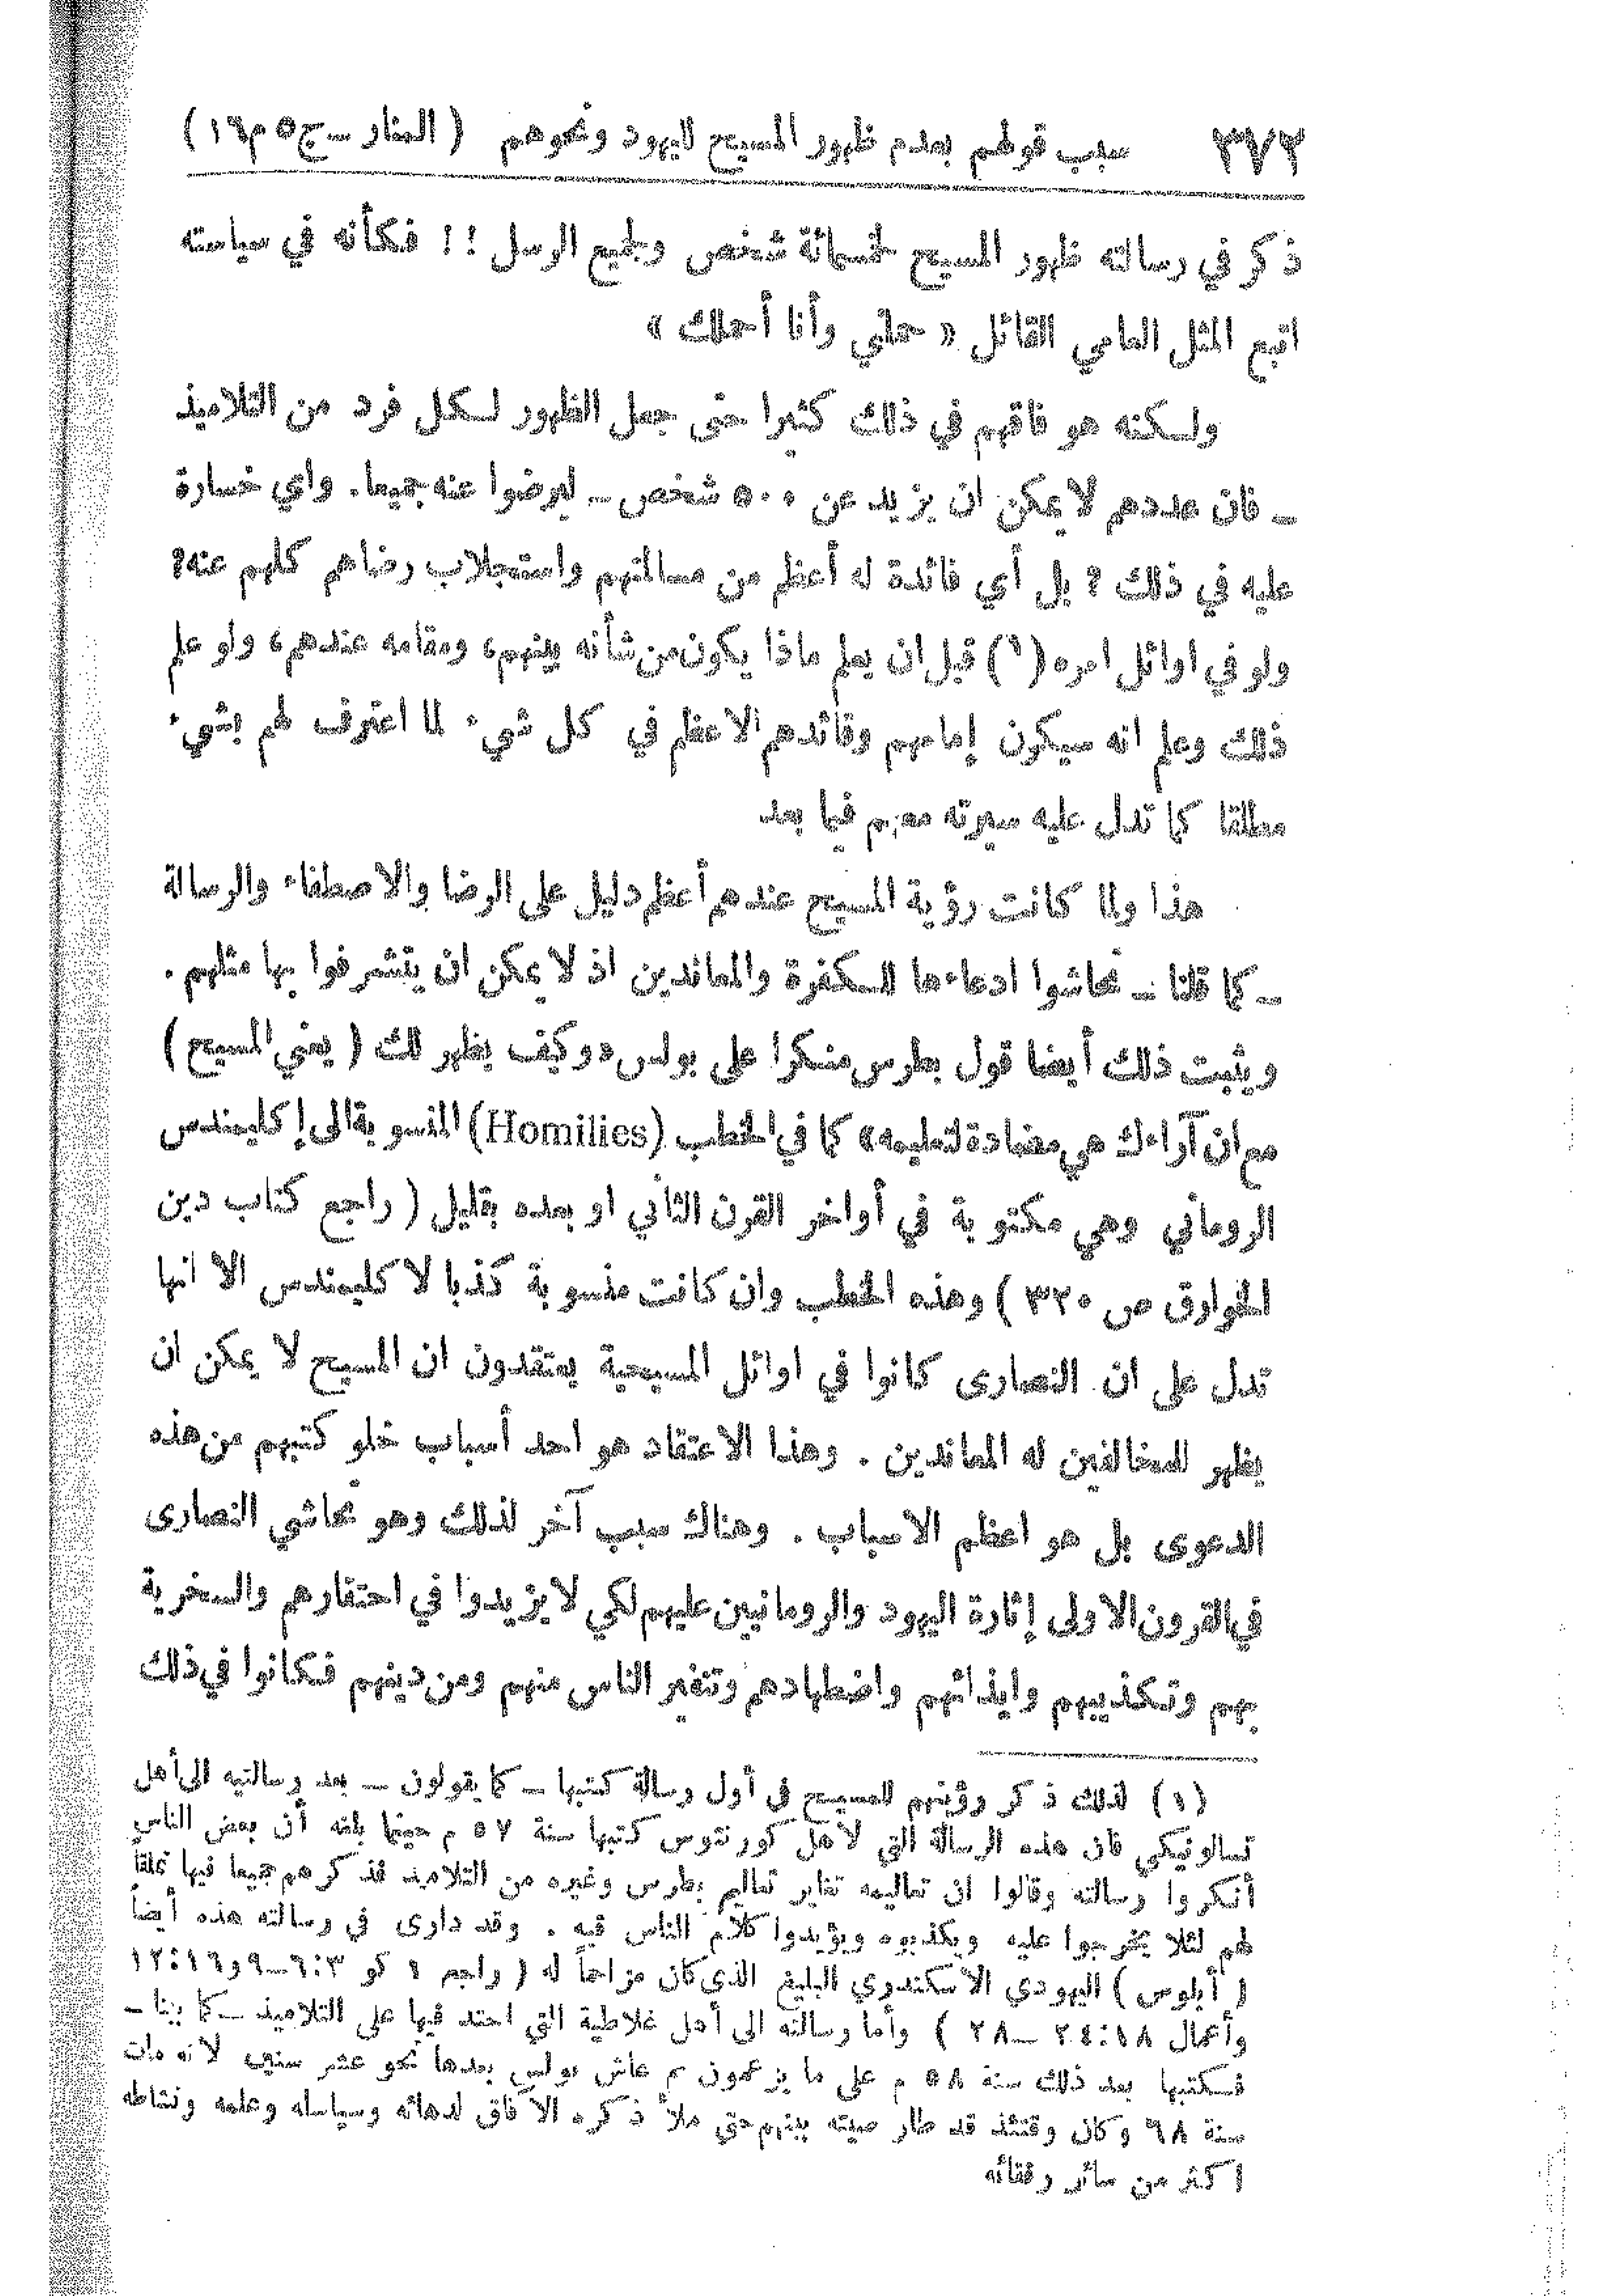 ٣٧٢ سبب قولهم بعدم ظهور المسيح لليهود ونحوهم ( المنار – ج٥ م١٦ )
ذكر في رسالته ظهور المسيح لخمسمائة شخص ولجميع الرسل !! فكأنه في سياسته
اتبع المثل العامي القائل « حملني وأنا أحملك »
ولكنه هو فاقهم في ذلك كثيرا حتى جعل الظهور لكل فرد من التلاميذ
– فان عددهم لا يمكن ان يزيد عن ٥٠٠ شخص – ليرضوا عنه جميعا. واي خسارة
عليه في ذلك ? بل أي فائدة له أعظم من مسالمتهم واستجلاب رضاهم كلهم عنه؟
ولو في اوائل امره (١) قبل ان يعلم ماذا يكون من شأنه بينهم، ومقامه عندهم، ولو علم
ذلك وعلم انه سيكون إمامهم وقائدهم الاعظم في كل شيء لما اعترف لهم بشيء
مطلقا كما تدل عليه سيرته معهم فيما بعد
هذا ولما كانت رؤية المسيح عندهم أعظم دليل على الرضا والاصطفاء والرسالة
– كما قلنا – تحاشوا ادعاءها للكفرة والمعاندين اذ لا يمكن ان يتشرفوا بها مثلهم .
ويثبت ذلك أيضا قول بطرس منكرا على بولس «وكيف يظهر لك ( يعني المسيح )
مع ان آراءك هي مضادة لتعليمه» كما في الخطب (Homilies) المنسوبة الى إكليمندس
الروماني وهي مكتوبة في أواخر القرن الثاني او بعده بقليل ( راجع كتاب دين
الخوارق ص ٣٢٠ ) وهذه الخطب وان كانت منسوبة كذبا لاكليمندس الا انها
تدل على ان النصارى كانوا في اوائل المسيحية يعتقدون ان المسيح لا يمكن ان
يظهر للمخالفين له المعاندين . وهذا الاعتقاد هو احد أسباب خلو كتبهم من هذه
الدعوى بل هو اعظم الاسباب . وهناك سبب آخر لذلك وهو تحاشي النصارى
في القرون الاولى إثارة اليهود والرومانيين عليهم لكي لا يزيدوا في احتقارهم والسخرية
بهم وتكذيبهم وايذائهم واضطهادهم وتنفير الناس منهم ومن دينهم فكانوا في ذلك
(١) لذلك ذكر رؤيتهم للمسيح في أول رسالة كتبها – كما يقولون – بعد رسالتيه الى أهل
تسالونيكي فان هذه الرسالة التي لأهل كورنثوس كتبها سنة ٥٧ م حينما بلغه أن بعض الناس
أنكروا رسالته وقالوا ان تعاليمه تغاير تعاليم بطرس وغيره من التلاميذ فذكرهم جميعا فيها تملقاً
لهم لئلا يخرجوا عليه ويكذبوه ويؤيدوا كلام الناس فيه . وقد دارى في رسالته هذه أيضاً
( أبلوس ) اليهودي الاسكندري البليغ الذي كان مزاحماً له ( راجع ١ كو ٣:٦–٩ و١٦:١٢
وأعمال ١٨:٢٤ –٢٨ ) وأما رسالته الى أهل غلاطية التي احتد فيها على التلاميذ – كما بينا –
فكتبها بعد ذلك سنة ٥٨ م على ما يزعمون ثم عاش بولس بعدها نحو عشر سنين لانه مات
سنة ٦٨ وكان وقتئذ قد طار صيته بينهم حتى ملأ ذكره الآفاق لدهائه وسياسته وعلمه ونشاطه
اكثر من سائر رفقائه